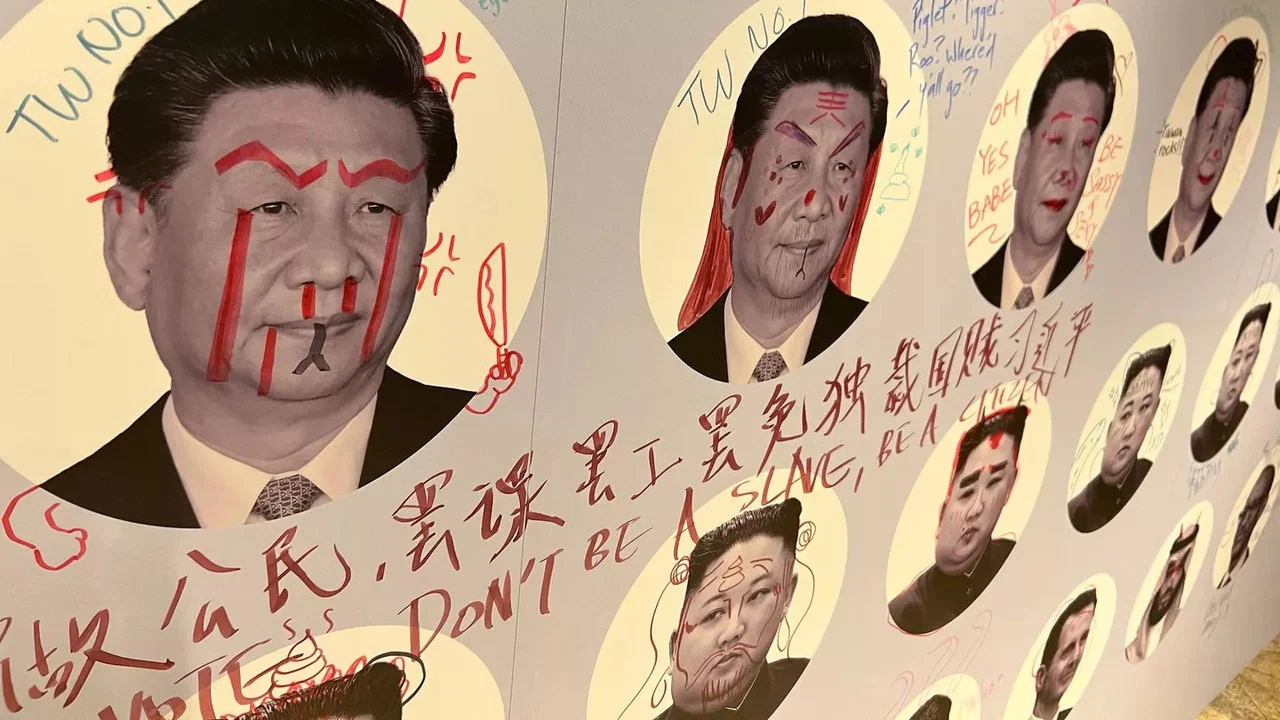 TW NO.1
TW NO.1
Piglet? Tigger?
Roo? Where'd
y'all go??
OH
YES
BABE
BE
Sassy
TAIWAN
ROCKS!!
做公民，罢课罢工罢免独裁国贼习近平
VOTE
DON'T BE A SLAVE, BE A CITIZEN